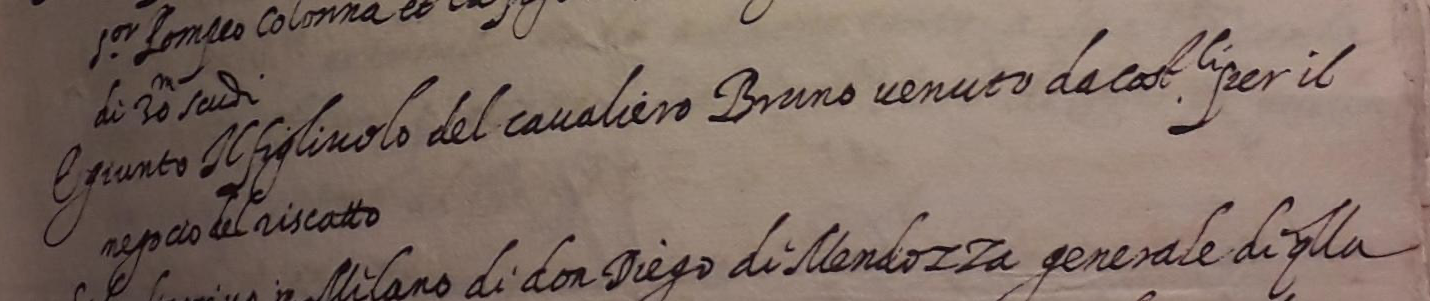 s.or Pompeo Colonna et la
di 20 m scudi
E giunto Il figliuolo del caualiero Bruno uenuto da cost.li per il
negocio del riscatto
in Milano di don Diego di Mendozza generale di qlla